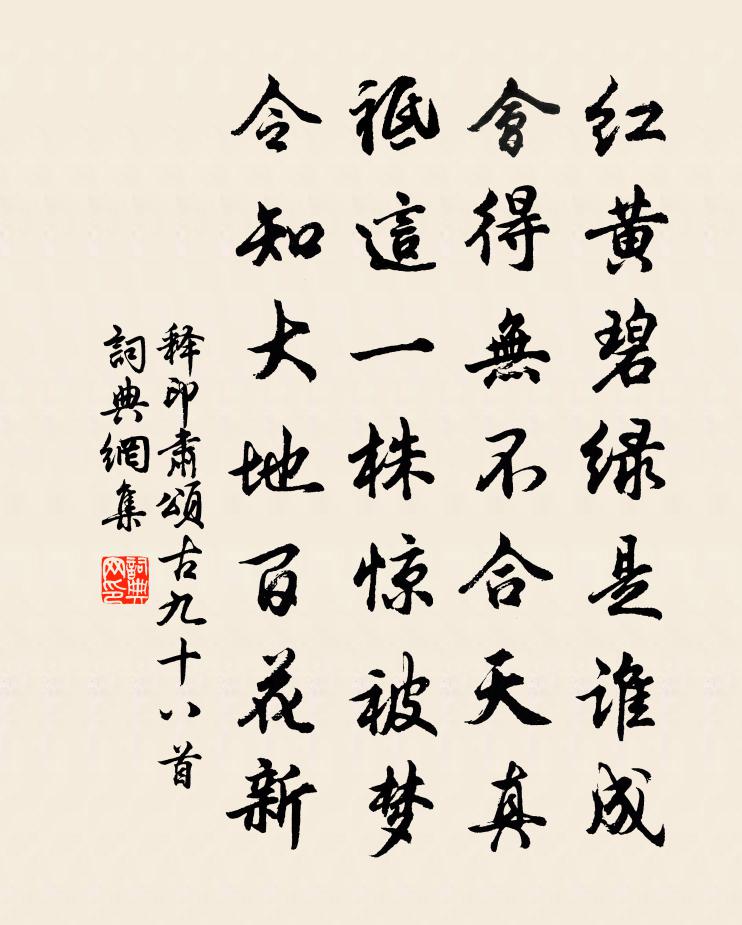 红黄碧绿是谁成
會得無不合天真
祇這一株惊被梦
令知大地百花新
释印肃頌古九十八首
詞典網集
詞典网印